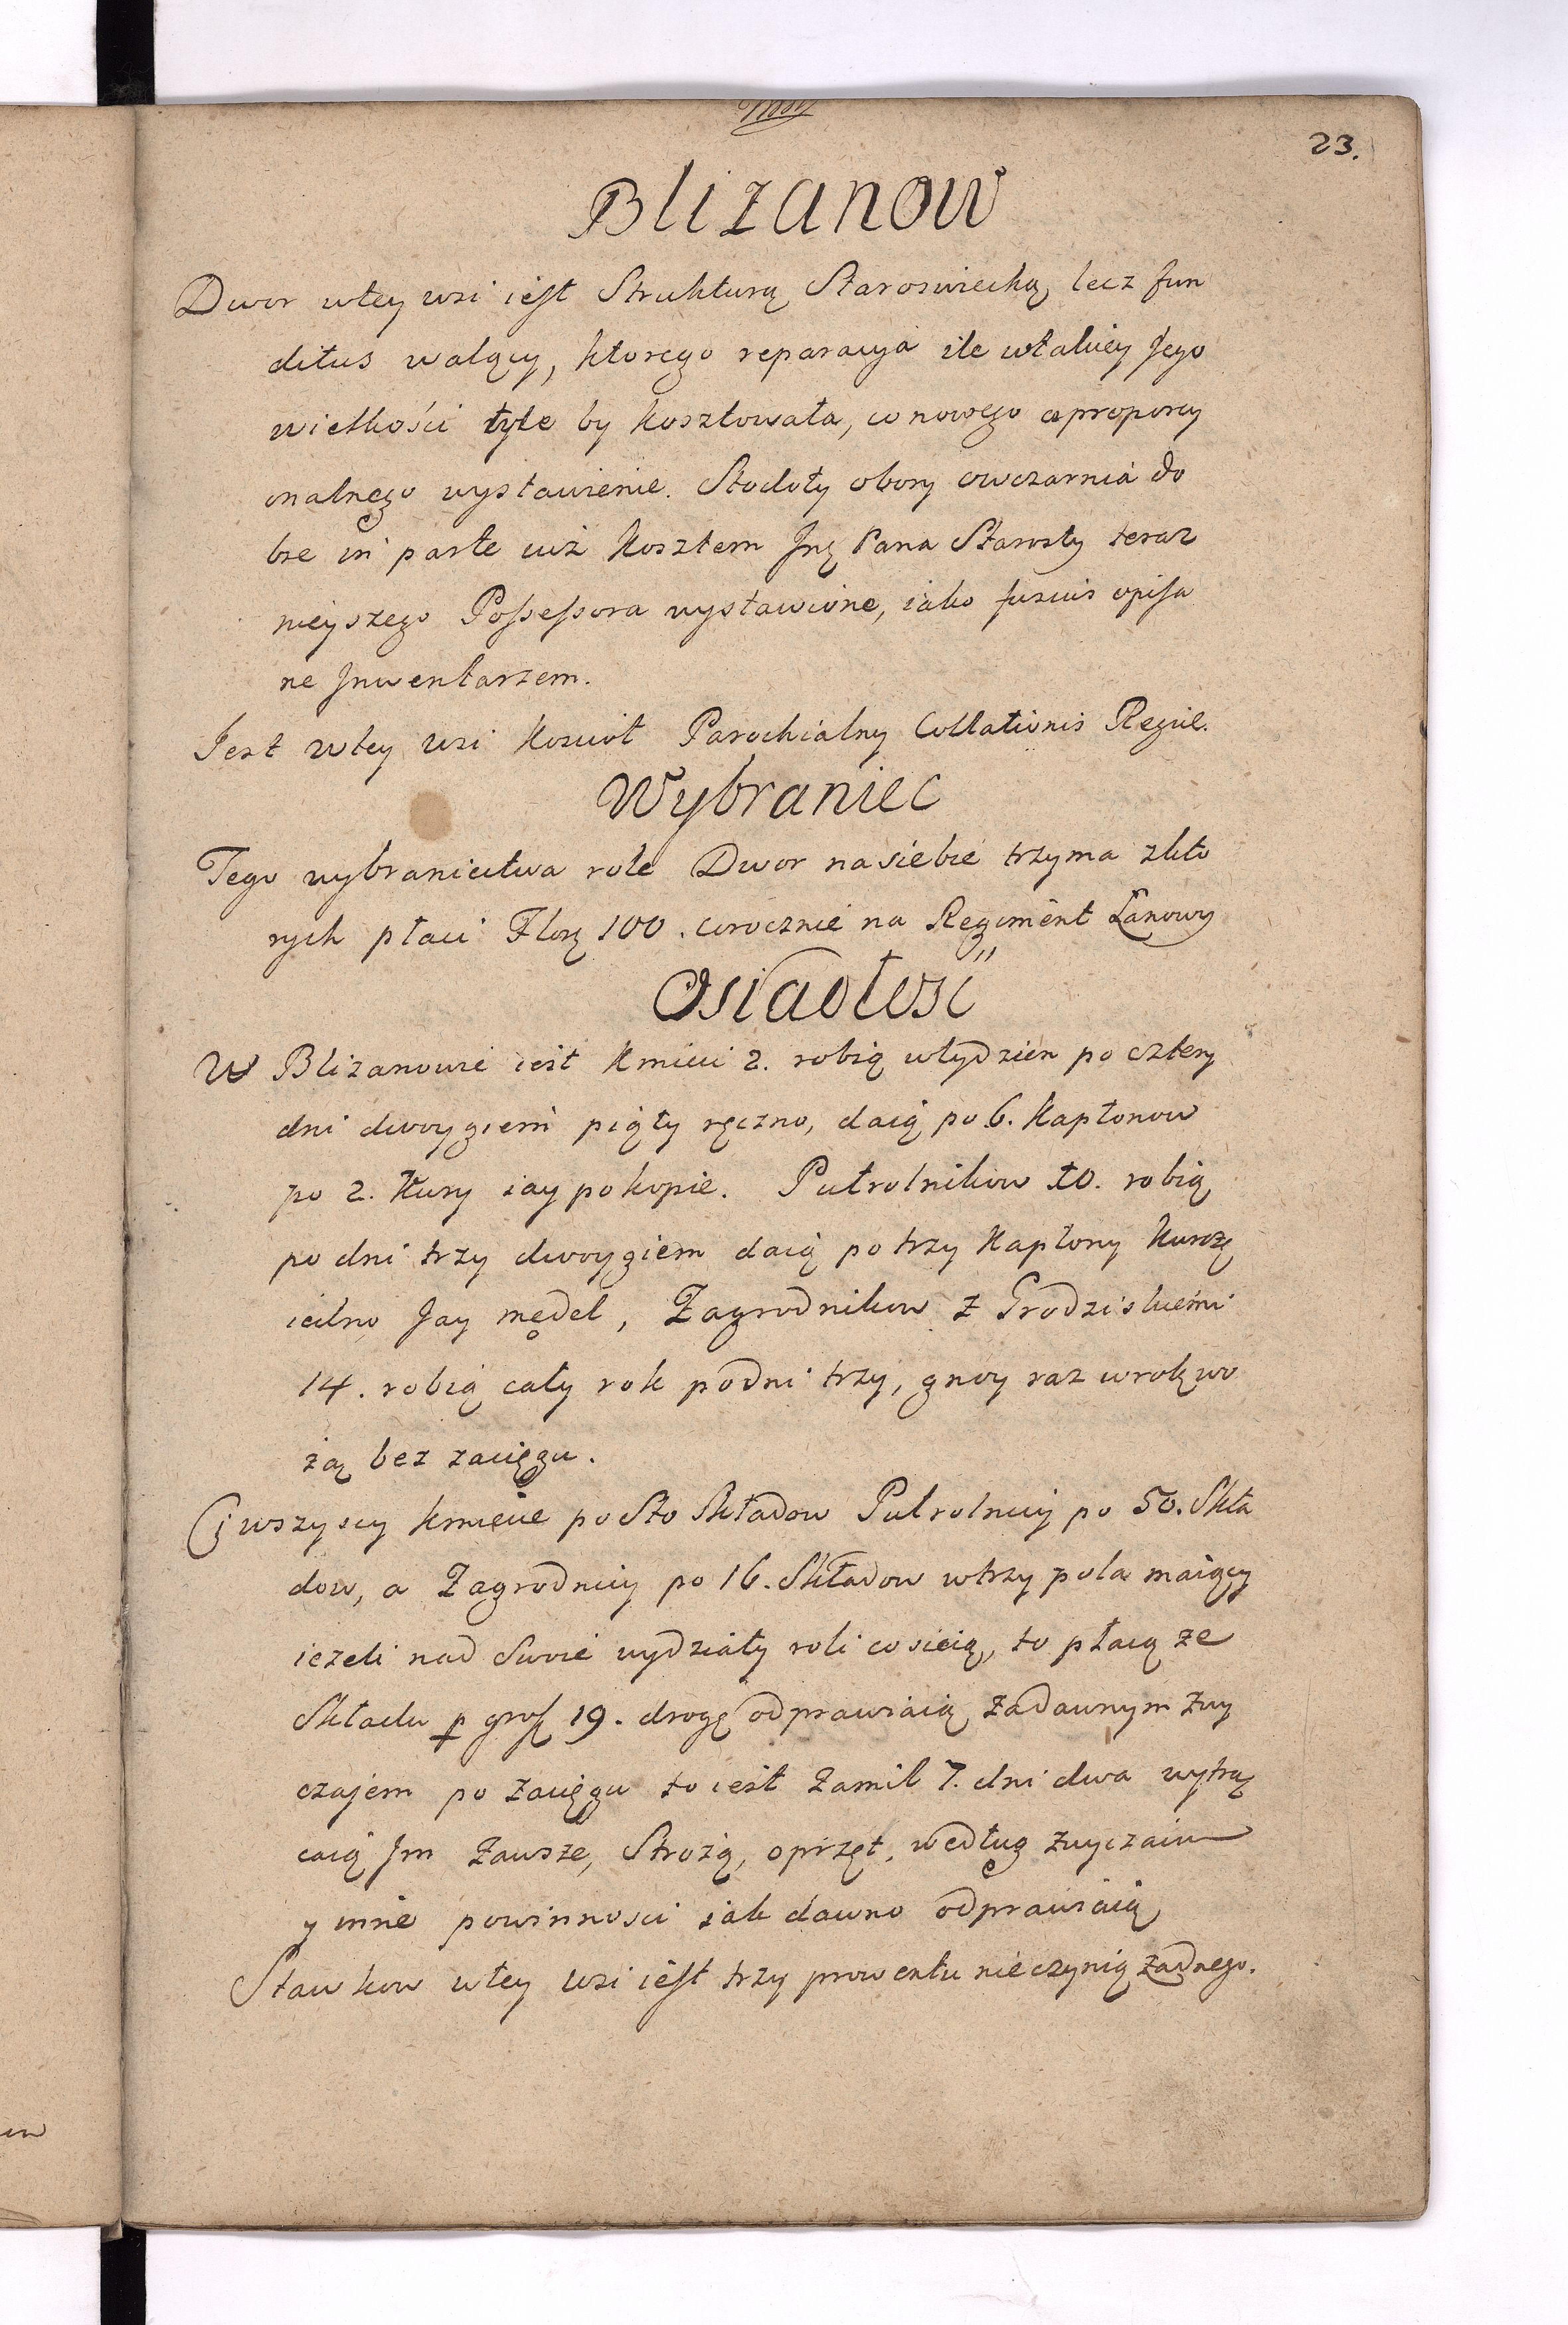 23.
Blizanow
Dwor wtey wsi iest Strukturą Staroswiecką, lecz fun
ditus walący, ktorego reparacya ile wtakiey Jego
wielkości tyle by kosztowała, co nowego aproporcy
onalnego wystawienie. Stodoły obory owczarnia do
bre in parte iuż kosztem Jmę Pana Starosty teraz
nieyszego Possessora wystawione, iako fusius opisa
ne Jnwentarzem.
Jest wtey wsi Kosciół Parochialny Collationis Regiæ.
Wybraniec
Tego wybraniectwa role Dwor nasiebie trzyma zkto
rych płaci Flor 100. corocznie na Regiment Łanowy
Osiadłość
W Blizanowie iest Kmieci 2. robią wtydzien po cztery
dni dwoygiem piąty ręczno, daią po 6. Kapłonow
po 2. Kury iay po kopie. Pułrolnikow 10. robią
po dni trzy dwoygiem daią po trzy Kapłony Kurczę
iedno Jay mędel, Zagrodnikow z Grodziskiemi
14. robią cały rok podni trzy, gnoy raz wrok wo
żą bez zacięgu.
Ci wszyscy kmiecie po Sto Składow Pułrolnicy po 50. Skła
dow, a Zagrodnicy po 16. Składow wtrzy pola maiący
ieżeli nad Swoie wydziały roli co sieią, to płacą ze
Składu p gros 19. drogę odprawiaią zadawnym zwy
czajem po zacięgu to iest zamil 7. dni dwa wytrą
caią Jm zawsze, Strożą, oprzęt, według zwyczaiu
y inne powinnosci iak dawno odprawiaią
Stawkow wtey wsi iest trzy prowentu nieczynią żadnego.